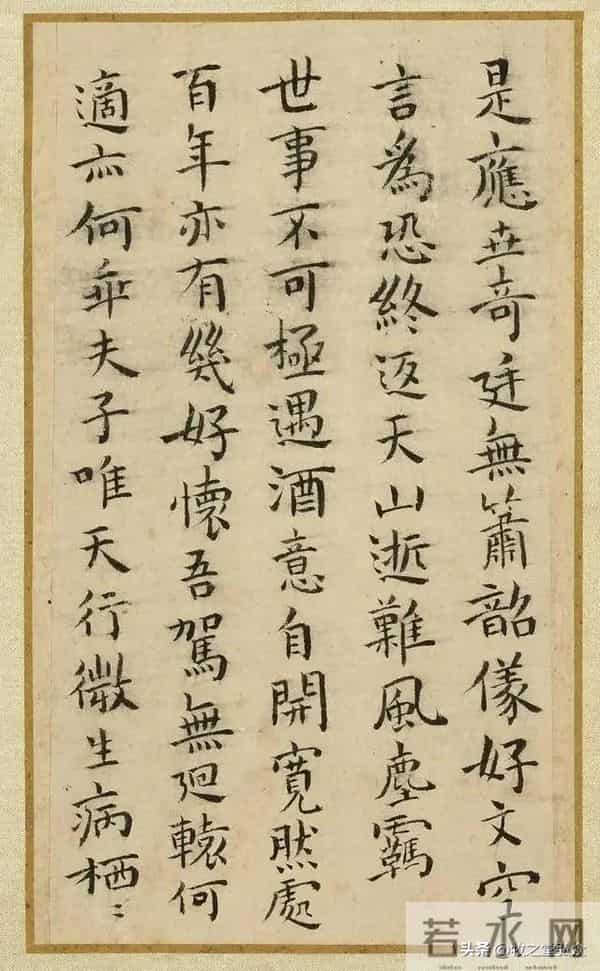 是應奇廷無簫韶儀好文空
言為恐終返天山逝難風塵羈
世事不可極遇酒意自開寬然處
百年亦有幾好懷吾駕無迴轅何
適亦何乖夫子唯天行微生病栖〻
若水网
头条 @牧之堂